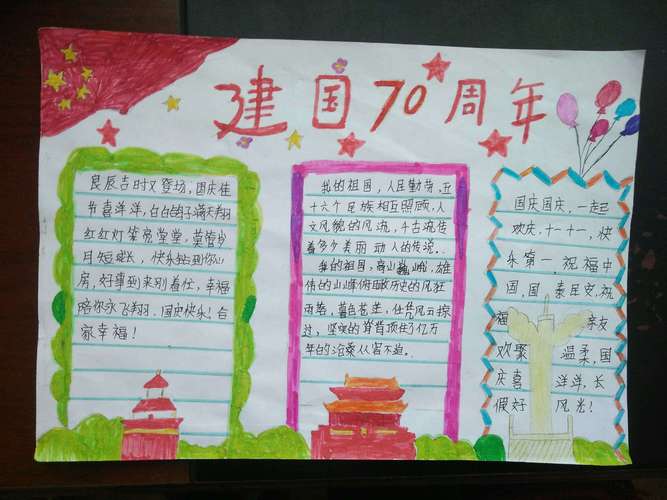 建国70周年
良辰吉时又登场,国庆佳
节喜洋洋,白白鸽子满天翔
红红灯笼亮堂堂,董岁
月短或长,快乐钻到你心
房,好事到来别着忙,幸福
陪你永飞翔,国庆快乐!合
家幸福!
我的祖国,人民勤劳,五
十六个民族相互照顾,人
文风貌的风流,千古流传
着多少美丽动人的传说.
我的祖国,高山巍峨,雄
伟的山峰俯瞰历史的风狂
雨落,暮色苍茫,任凭风云掠
过,坚实的脊背顶住了亿万
年的沧桑从容不迫。
国庆国庆,一起
欢庆.十一十一,快
乐第一祝福中
国,国泰民安,祝
福亲友
欢聚温柔,国
庆喜洋洋,长
假好风光!